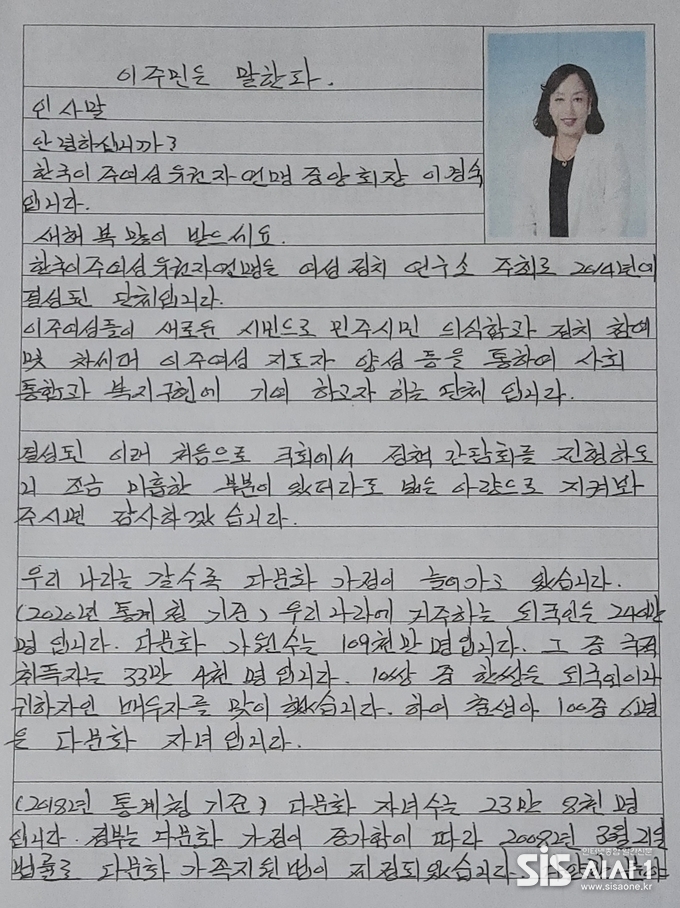 이주민은 말한다.
인사말
안녕하십니까?
한국이주여성유권자연맹 중앙회장 이경숙
입니다.
새해 복 많이 받으세요.
한국이주여성유권자연맹은 여성정치 연구소 주최로 2014년에
결성된 단체입니다.
이주여성들이 새로운 시민으로 민주시민 의식함과 정치 참여
및 차세대 이주여성 지도자 양성 등을 통하여 사회
통합과 복지구현에 기여 하고자 하는 단체 입니다.
결성된 이래 처음으로 국회에서 정책 간담회를 진행하오
니 조금 미흡한 부분이 있더라도 넓은 아량으로 지켜봐
주시면 감사하겠습니다.
우리 나라는 갈수록 다문화 가정이 늘어가고 있습니다.
(2020년 통계청 기준) 우리나라에 거주하는 외국인은 240만
명 입니다. 다문화 가원수는 109천만 명입니다. 그 중 국적
취득자는 33만 4천 명 입니다. 10쌍 중 한쌍은 외국인이나
귀하자인 배우자를 맞이 했습니다. 하여 출생아 100중 6명
은 다문화 자녀 입니다.
(2018년 통계청 기준) 다문화 자녀수는 23만 8천 명
입니다. 정부는 다문화 가정이 증가함에 따라 2008년 3월 21일
법률로 다문화 가족지원법이 제정되었습니다.
SiS 시사1
인터넷종합 일간신문
www.sisaone.kr